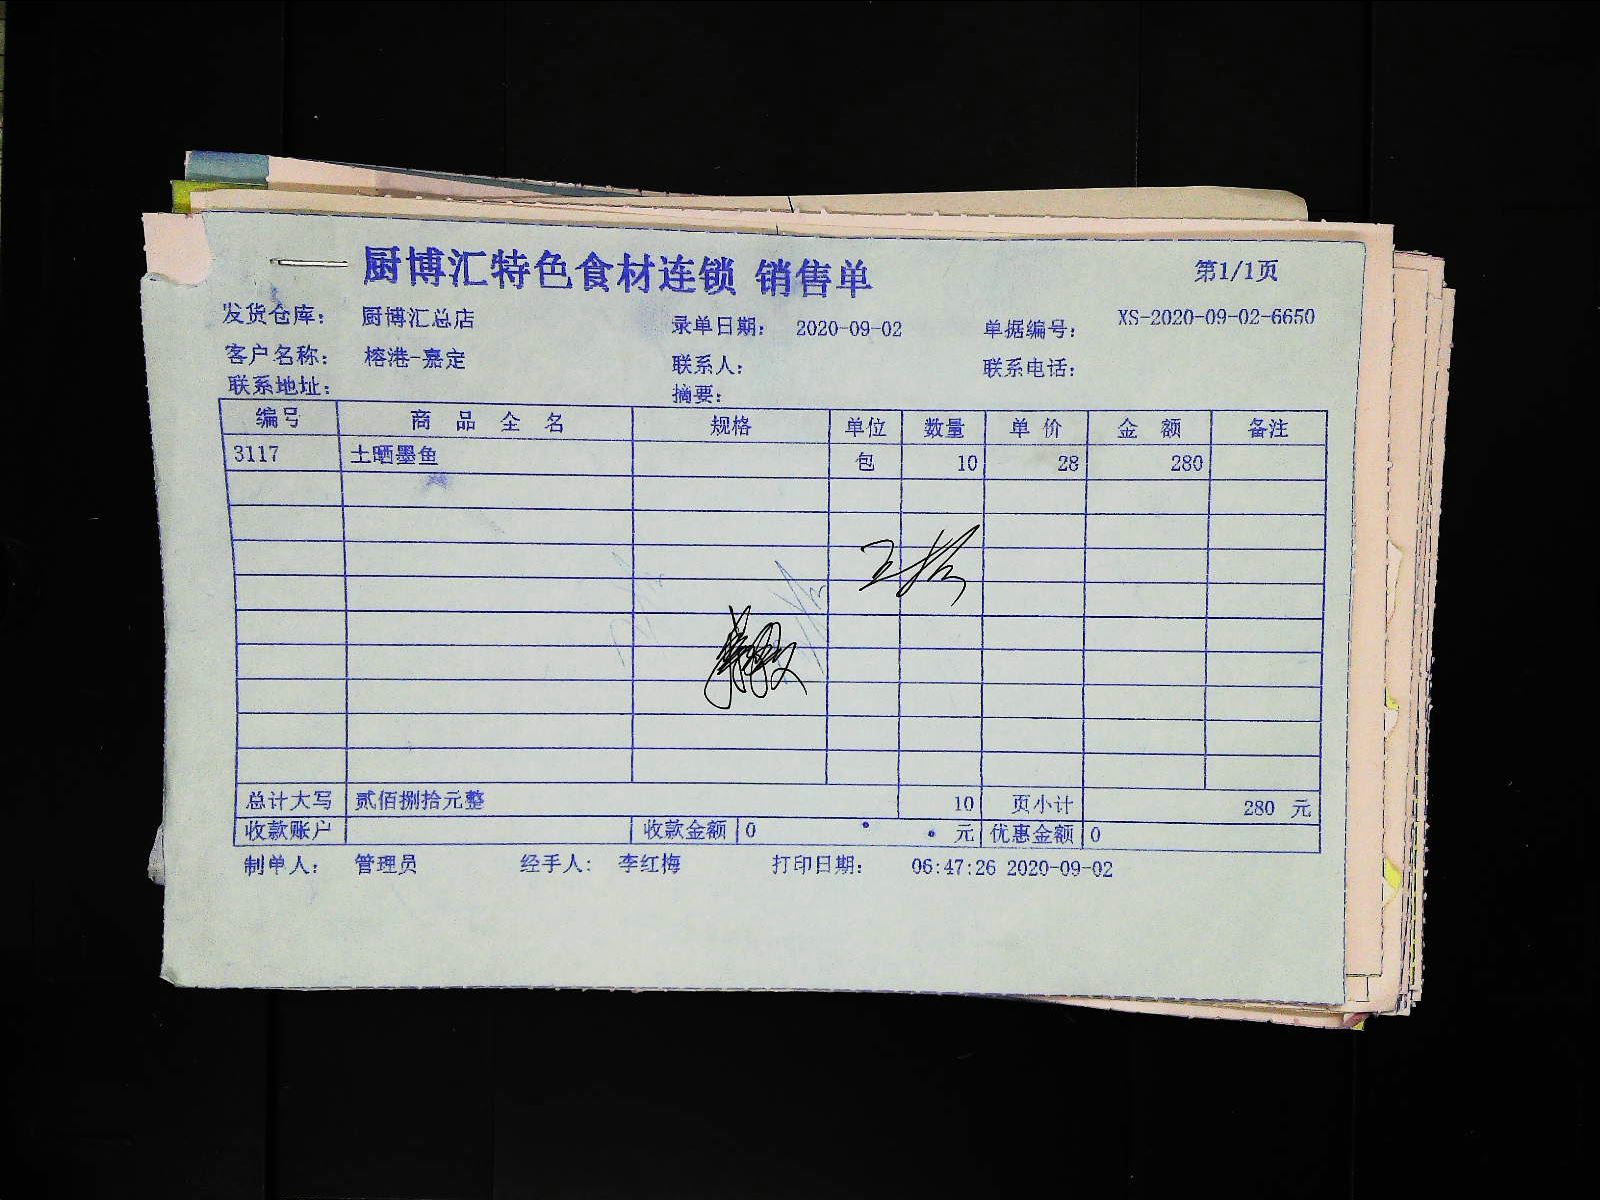 厨博汇特色食材连锁 销售单 第1/1页
发货仓库: 厨博汇总店 录单日期: 2020-09-02 单据编号: XS-2020-09-02-6650
客户名称: 榕港-嘉定 联系人: 联系电话:
联系地址: 摘要:
编号 商品全名 规格 单位 数量 单价 金额 备注
3117 土晒墨鱼 包 10 28 280
总计大写 贰佰捌拾元整 10 页小计 280 元
收款账户 收款金额 0 元 优惠金额 0
制单人: 管理员 经手人: 李红梅 打印日期: 06:47:26 2020-09-02